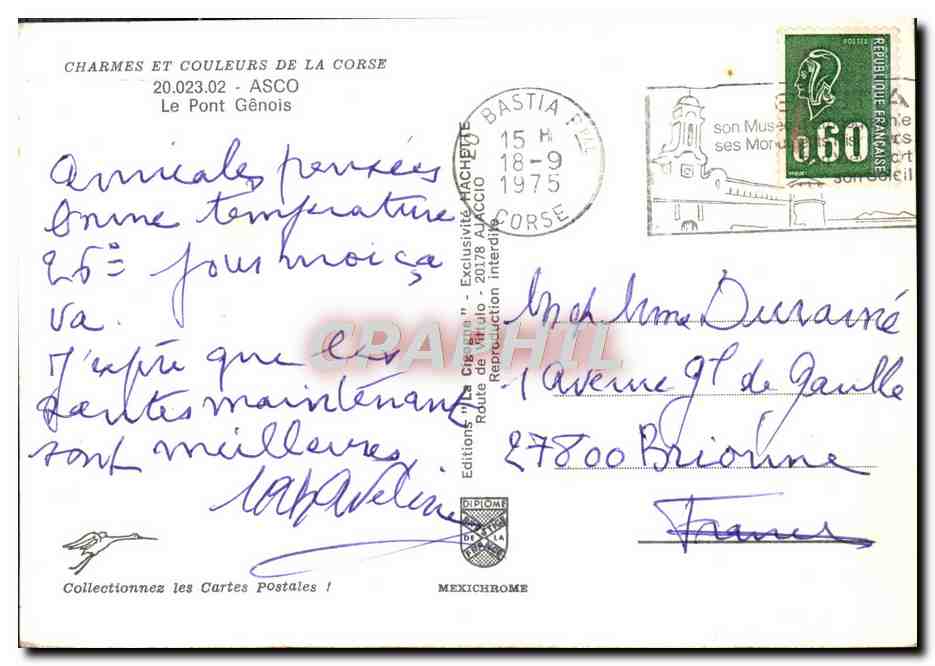 CHARMES ET COULEURS DE LA CORSE
20.023.02 - ASCO
Le Pont Gênois
amicales pensées
bonne température
26° pour moi ça
va.
J'espère que les
santés maintenant
sont meilleures
Collectionnez les Cartes Postales !
Editions "La Cigogne" - Exclusivité HACHETTE
Route de Vittulo - 20178 AJACCIO
Reproduction interdite
DIPLOME
DE LA
MEXICHROME
20 BASTIA Ppal
15 H
18-9
1975
CORSE
son
ses
son Soleil
POSTES
REPUBLIQUE FRANÇAISE
0.60
Mme
1 Avenue Gl de Gaulle
27800 Brionne
France
CPAPHIL